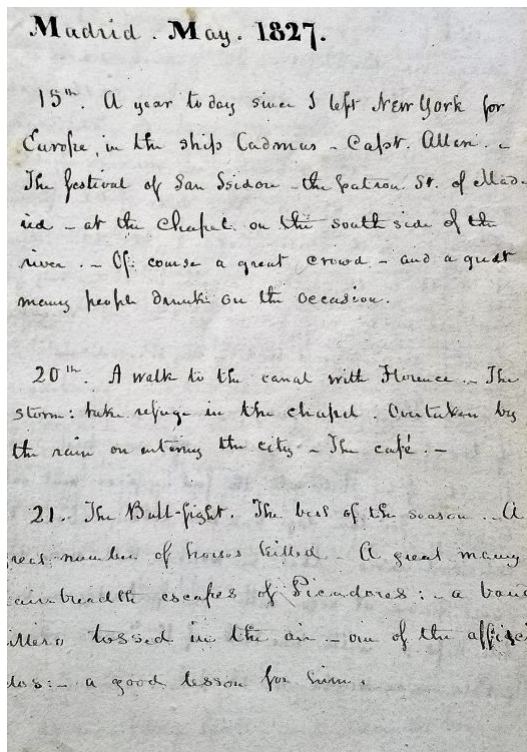 Madrid. May. 1827.
15th. A year to day since I left New York for
Europe, in the ship Cadmus - Capt. Allen. -
The festival of San Isidou - the patron St. of Mad-
rid - at the chapel on the south side of the
river. - Of course a great crowd - and a great
many people drunk on the occasion.
20th. A walk to the canal with Florence. - The
storm: take refuge in the chapel. Overtaken by
the rain on entering the city - The café. -
21. The Bull-fight. The best of the season. A
reat number of horses killed. A great many
airbreadth escapes of Picadores: - a band
illero tossed in the air - one of the affici
dos: - a good lesson for him.